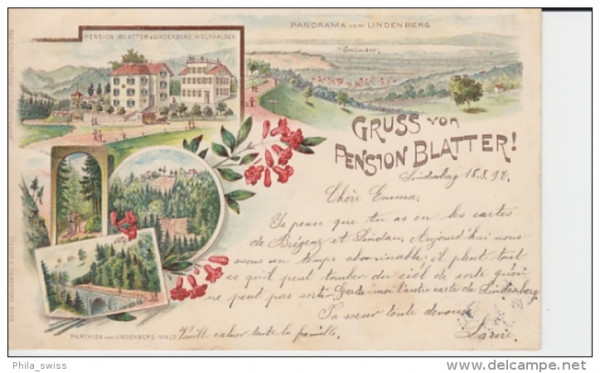 PENSION BLATTER z. LINDENBERG WOLFHALDEN
PANORAMA vom LINDENBERG
GRUSS von
PENSION BLATTER!
Lindenberg 18.8.92.
Chère Emma,
Je pense que tu as eu les cartes
de Brégenz et Lindau. Aujourd'hui nous
avons un temps abominable, il pleut tout
ce qu'il peut tomber du ciel de sorte qu'on
ne peut pas sortir. Garde-moi l'autre carte de Lindenberg
Ta sœur toute dévouée
Veuille saluer toute la famille.
PARTHIEN vom LINDENBERG-WALD
Phila_swiss
delcampe.net